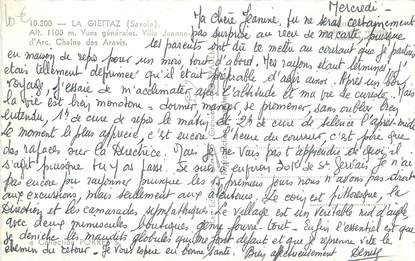 10€
10.200 — LA GIETTAZ (Savoie).
Alt. 1100 m. Vues générales. Villa Jeanne
d'Arc. Chaîne des Aravis.
Mercredi -
Ma chère Jeannine, tu ne seras certainement
pas surprise au reçu de ma carte, puisque
tes parents ont dû te mettre au courant que je partais
en maison de repos pour un mois, tout d'abord. Mes rayons étant terminés j'
étais tellement déprimée qu'il était préférable d'agir ainsi. Après un bon
voyage, j'essaie de m'acclimater à l'altitude et ma vie de currente. Mais
la vie est bien monotone = dormir manger se promener, sans oublier bien
entendu, 1h de cure de repos le matin et 2h de cure de silence l'après-midi
Le moment le plus apprécié, c'est encore l'heure du courrier, c'est pire que
des rapaces sur la Directrice. Mais je ne vais pas t'apprendre de quoi il
s'agit puisque tu y as passé. Je suis à environ 30 km de St Gervais. Je n'ai
pas encore pu rayonner puisque les 15 premiers jours nous n'avons pas droit
aux excursions, mais seulement aux alentours. Le coin est pittoresque, la
Direction et les camarades sympathiques. Le village est un véritable nid d'aigle
avec deux minuscules boutiques genre fourre-tout. Enfin l'essentiel est que
je déniche les maudits globules qui me font défaut et que je reprenne vite le
chemin du retour - Je vous espère en bonne santé. Bien affectueusement Denise
© Collection PORRET